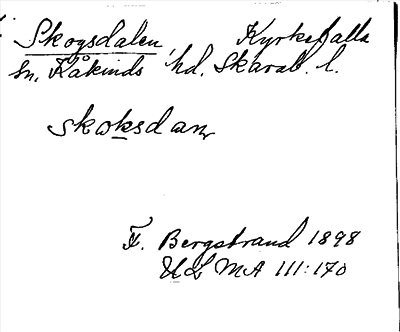 Skogsdalen, Kyrkefalla
sn, Kåkinds hd. Skarab. l.
skωksdanr
F. Bergstrand 1898
ULMA 111:170